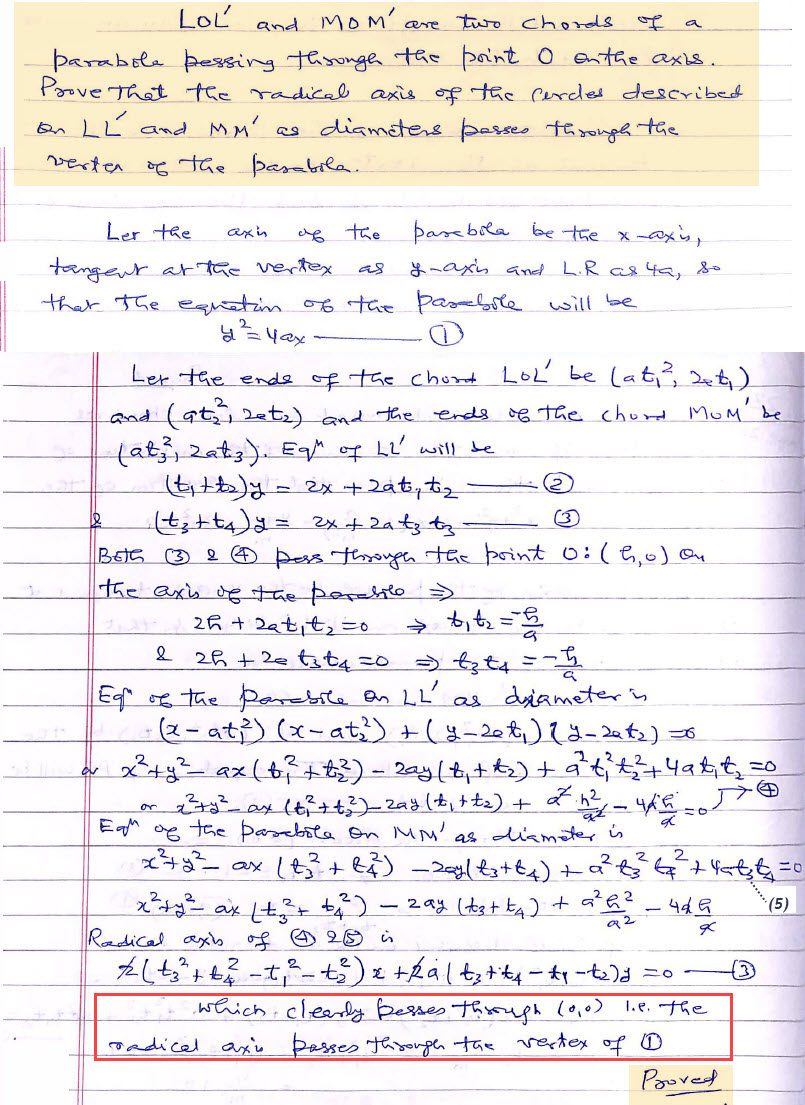 LOL' and MOM' are two chords of a
parabola pessing through the point O on the axis.
Prove that the radical axis of the circles described
on LL' and MM' as diameters passes through the
vertex of the parabola.
Let the axis of the parabola be the x-axis,
tangent at the vertex as y-axis and L.R as 4a, so
that the equation of the parabola will be
y² = 4ax ——— ①
Let the ends of the chord LOL' be (at₁², 2at₁)
and (at₂², 2at₂) and the ends of the chord MOM' be
(at₃², 2at₃). Eqⁿ of LL' will be
(t₁+t₂)y = 2x + 2at₁t₂ ——— ②
& (t₃+t₄)y = 2x + 2at₃t₃ ——— ③
Both ③ & ④ pass through the point O:(h,0) on
the axis of the parabola ⇒
2h + 2at₁t₂ = 0 ⇒ t₁t₂ = -h/a
& 2h + 2a t₃t₄ = 0 ⇒ t₃t₄ = -h/a
Eqⁿ of the parabola on LL' as diameter is
(x - at₁²) (x - at₂²) + (y - 2at₁) (y - 2at₂) = 0
or x² + y² - ax(t₁² + t₂²) - 2ay(t₁ + t₂) + a²t₁²t₂² + 4at₁t₂ = 0
or x² + y² - ax (t₁² + t₂²) - 2ay (t₁ + t₂) + a² h²/a² - 4a h/a = 0 → ④
Eqⁿ of the parabola on MM' as diameter is
x² + y² - ax (t₃² + t₄²) - 2ay(t₃+t₄) + a² t₃² t₄² + 4at₃t₄ = 0
x² + y² - ax (t₃² + t₄²) - 2ay (t₃+t₄) + a²h²/a² - 4a h/a (5)
Radical axis of ④ & ⑤ is
a(t₃² + t₄² - t₁² - t₂²) x + 2a(t₃ + t₄ - t₁ - t₂)y = 0 ——— ③
which clearly passes through (0,0) i.e. the
radical axis passes through the vertex of ①
Proved